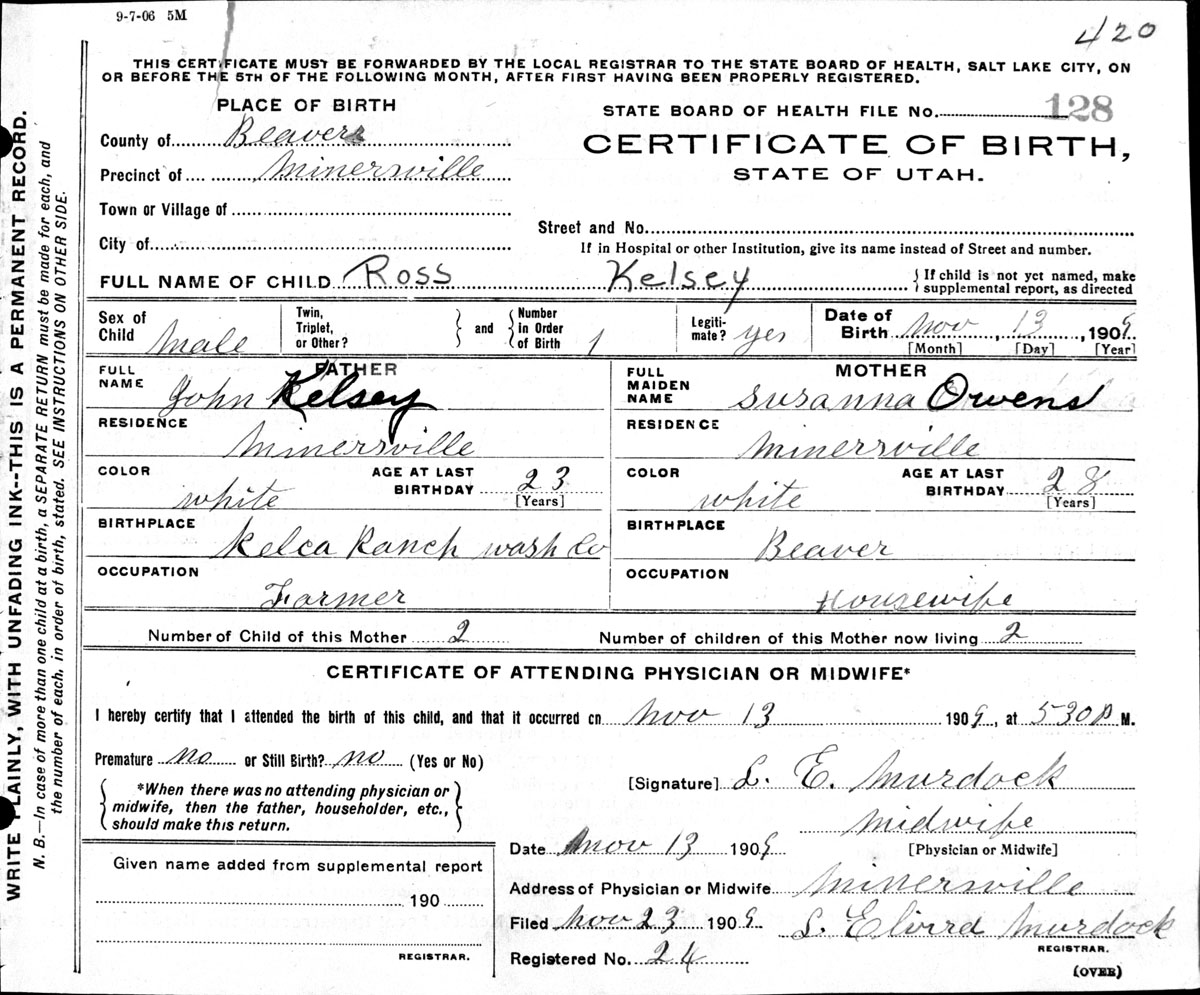 9-7-06 5M
420
THIS CERTIFICATE MUST BE FORWARDED BY THE LOCAL REGISTRAR TO THE STATE BOARD OF HEALTH, SALT LAKE CITY, ON
OR BEFORE THE 5TH OF THE FOLLOWING MONTH, AFTER FIRST HAVING BEEN PROPERLY REGISTERED.
PLACE OF BIRTH
STATE BOARD OF HEALTH FILE No. 128
County of Beaver
CERTIFICATE OF BIRTH,
Precinct of Minersville
STATE OF UTAH.
Town or Village of
Street and No.
City of
If in Hospital or other Institution, give its name instead of Street and number.
FULL NAME OF CHILD Ross Kelsey { If child is not yet named, make
supplemental report, as directed
Sex of Child Male
Twin, Triplet, or Other? } and { Number in Order of Birth 1
Legiti-mate? yes
Date of Birth Nov 13, 1909
[Month] [Day] [Year]
FATHER
FULL NAME John Kelsey
MOTHER
FULL MAIDEN NAME Susanna Owens
RESIDENCE Minersville
RESIDENCE Minersville
COLOR white AGE AT LAST BIRTHDAY 23 [Years]
COLOR white AGE AT LAST BIRTHDAY 28 [Years]
BIRTHPLACE Kelca Ranch Wash Co
BIRTHPLACE Beaver
OCCUPATION Farmer
OCCUPATION Housewife
Number of Child of this Mother 2 Number of children of this Mother now living 2
CERTIFICATE OF ATTENDING PHYSICIAN OR MIDWIFE*
I hereby certify that I attended the birth of this child, and that it occurred on Nov 13 1909, at 530 P M.
Premature no or Still Birth? no (Yes or No)
[Signature] L. E. Murdock
{ *When there was no attending physician or
midwife, then the father, householder, etc.,
should make this return. }
Midwife
[Physician or Midwife]
Date Nov 13 1909
Given name added from supplemental report
190
REGISTRAR.
Address of Physician or Midwife Minersville
Filed Nov 23 1909 L. Elvira Murdock
REGISTRAR.
Registered No. 24
(OVER)
WRITE PLAINLY, WITH UNFADING INK--THIS IS A PERMANENT RECORD.
N. B.—In case of more than one child at a birth, a SEPARATE RETURN must be made for each, and
the number of each, in order of birth, stated. SEE INSTRUCTIONS ON OTHER SIDE.